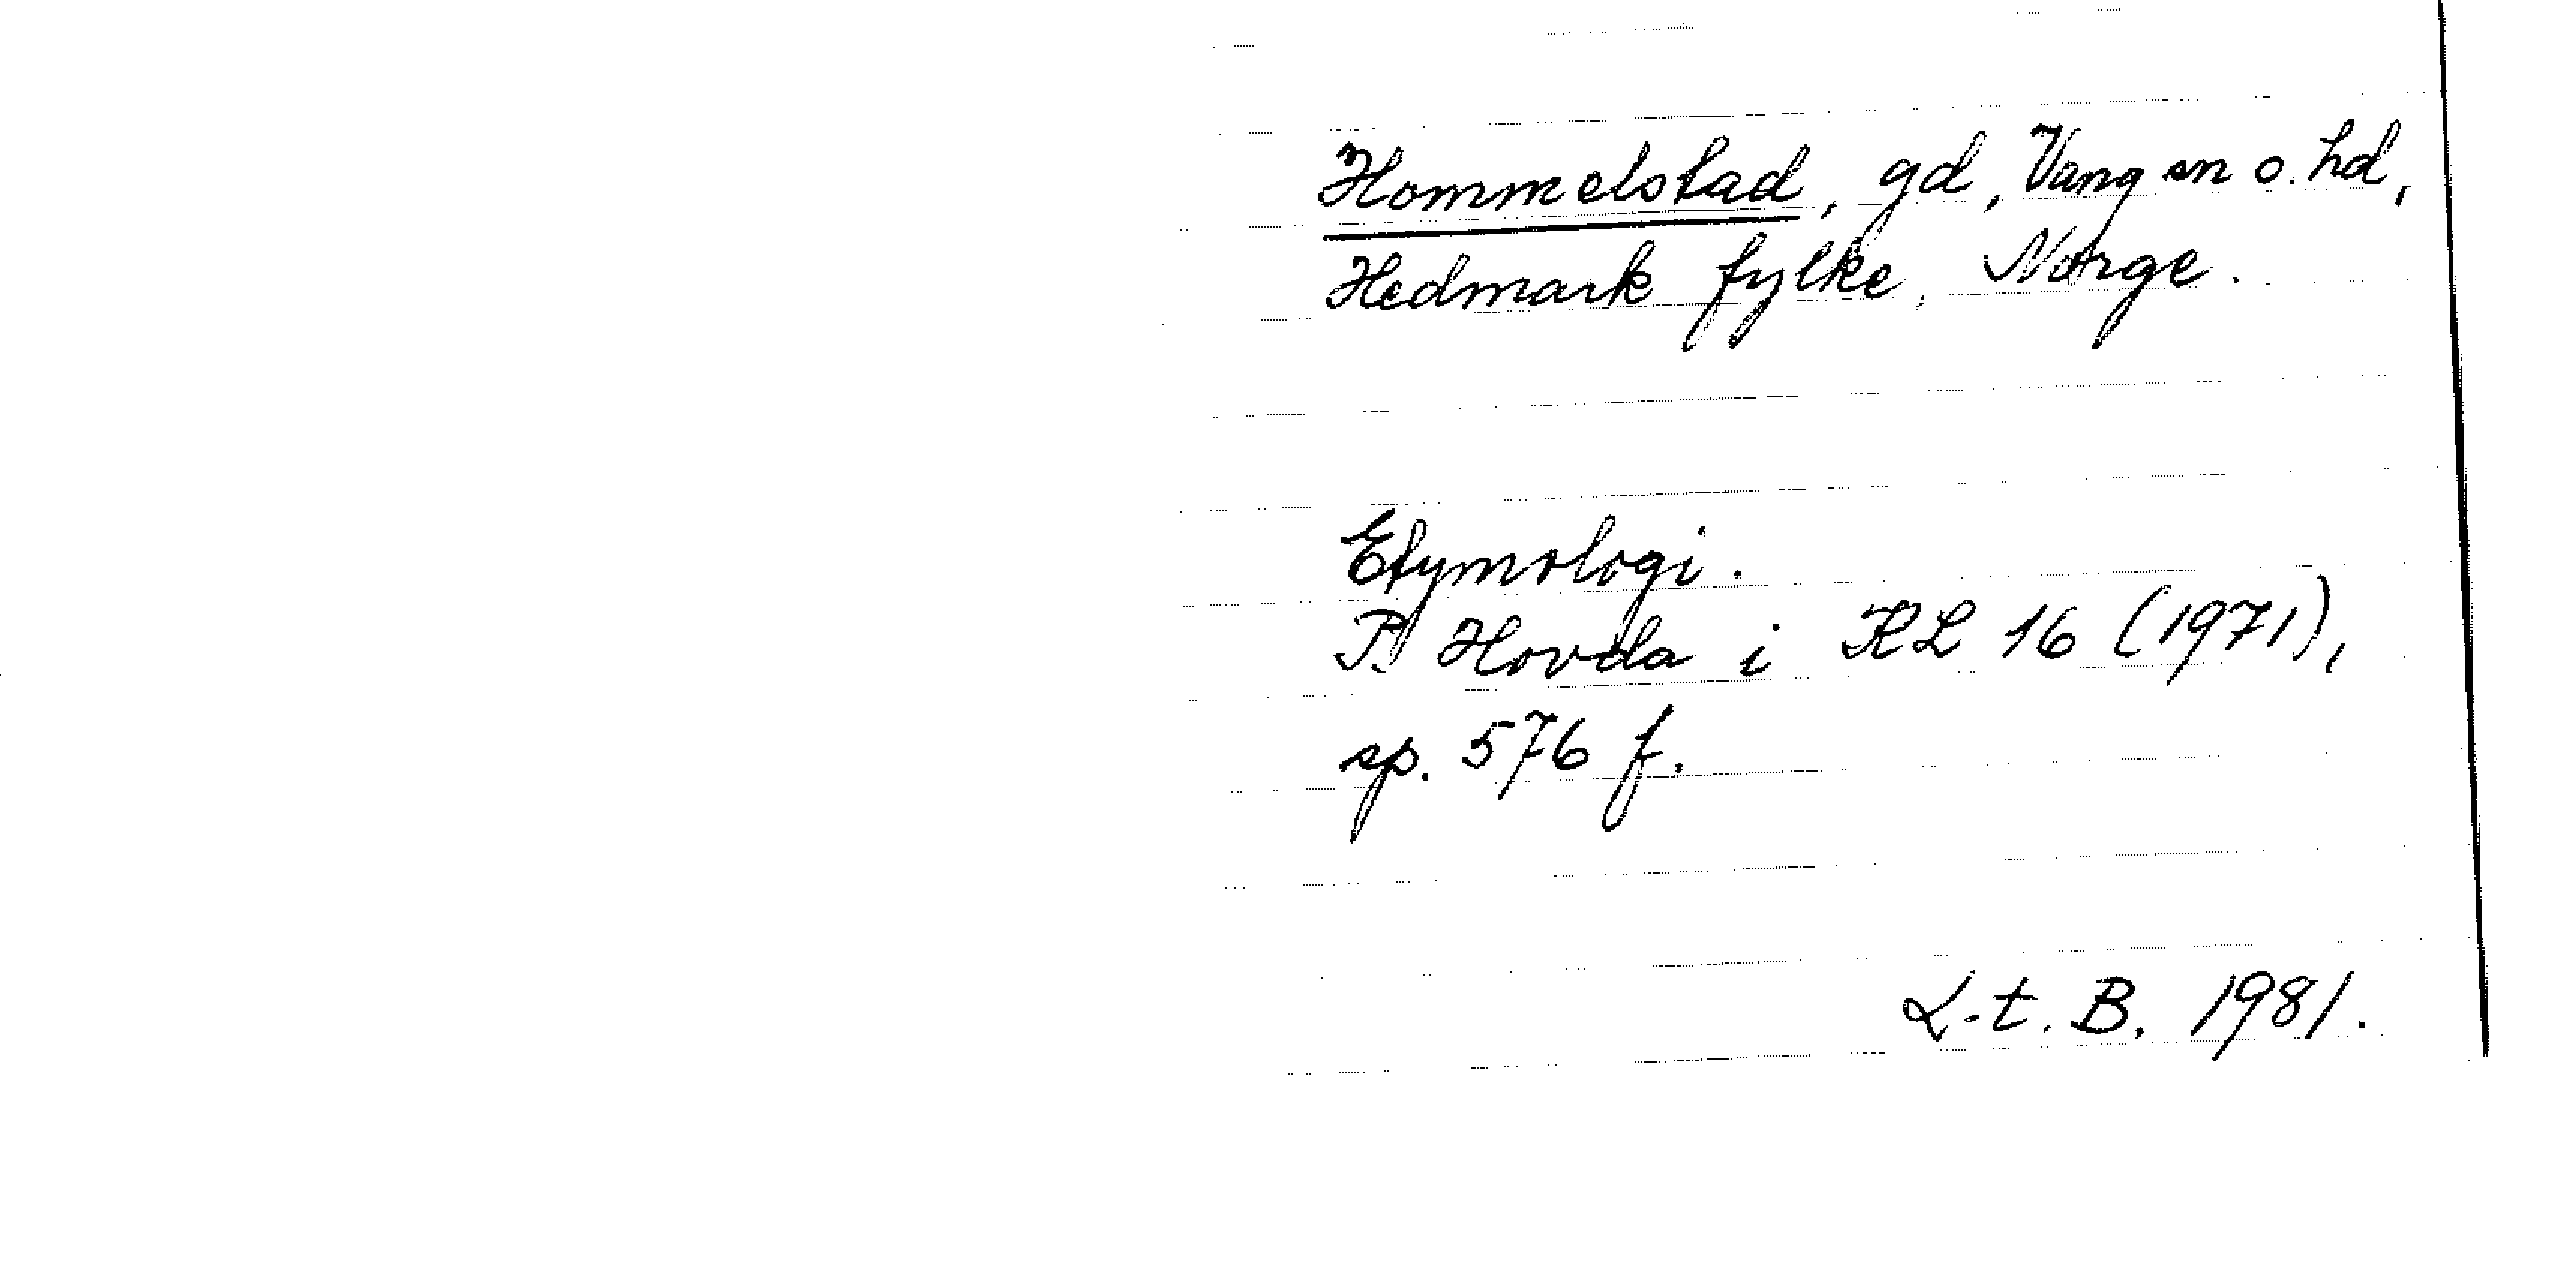 Hommelstad, gd, Vang sn o. hd,
Hedmark fylke, Norge.
Etymologi.
P. Hovda i KL 16 (1971),
sp. 576 f.
L-t. B. 1981.